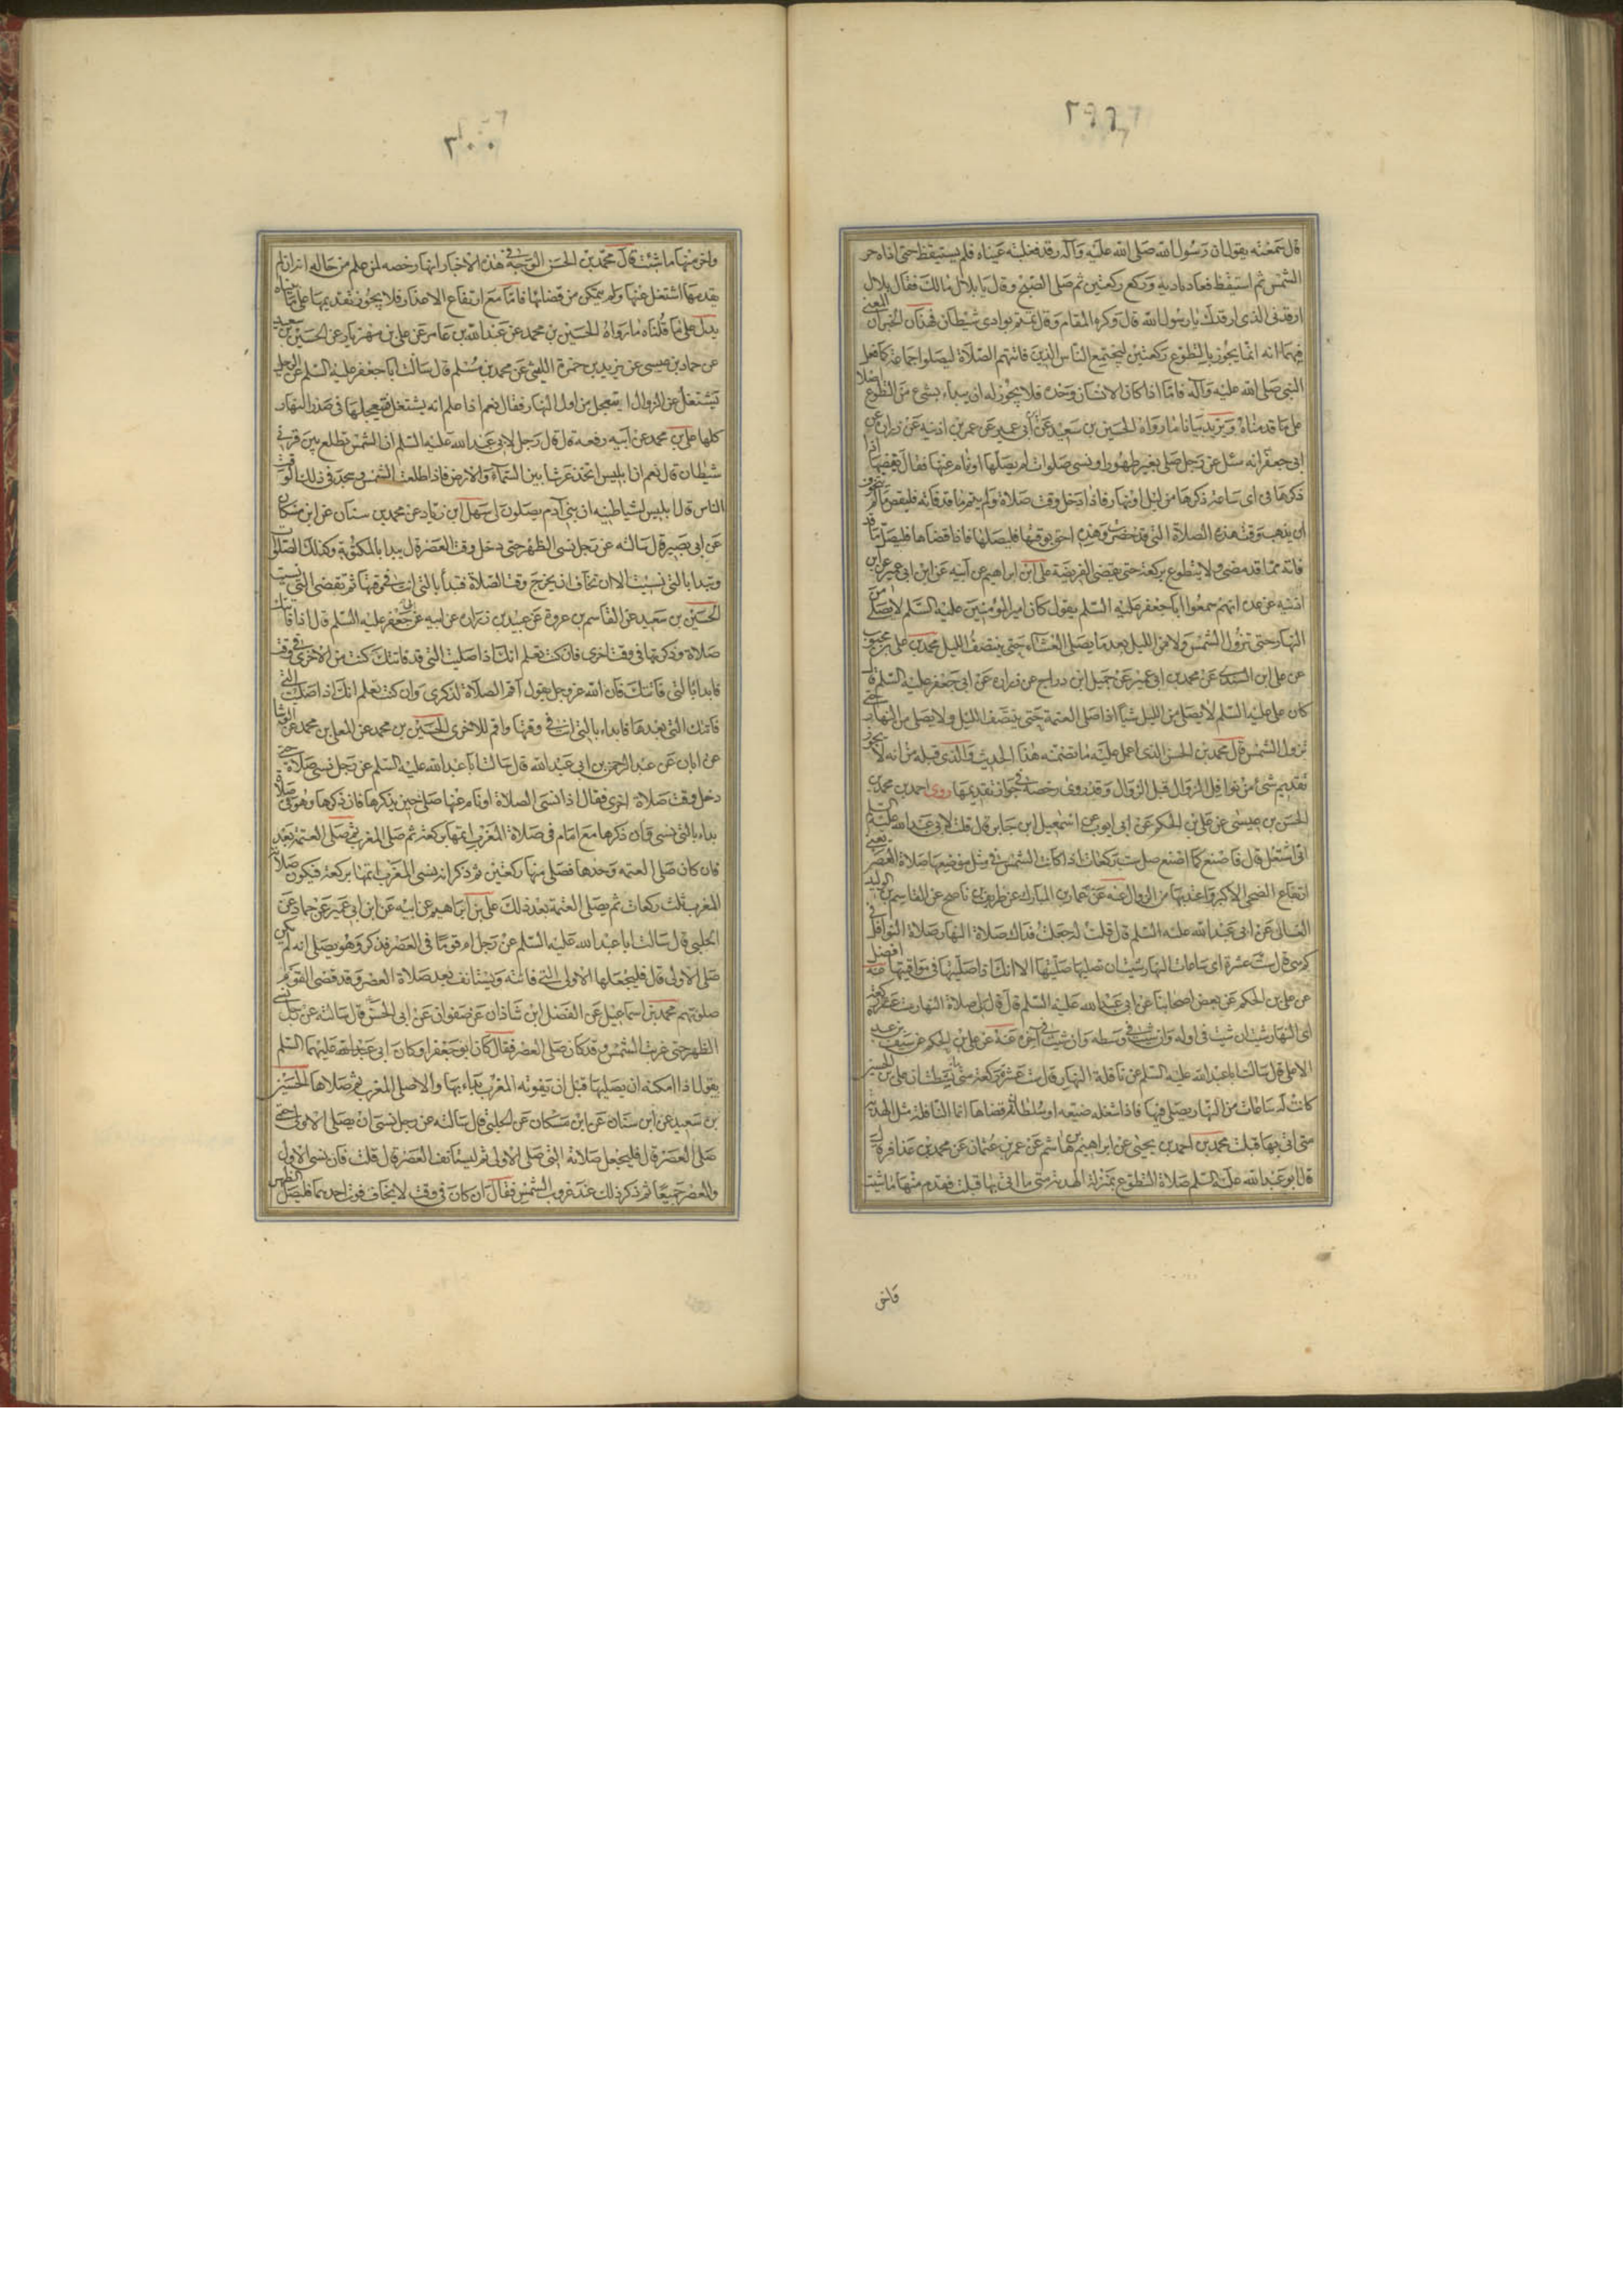 ٢٩٩
قال سمعته يقول ان رسول الله صلى الله عليه وآله رقد فغلبته عيناه فلم يستيقظ حتى اذاه حر
الشمس ثم استيقظ فعاد ناديه وركع ركعتين ثم صلى الصبح وقال يا بلال مالك فقال بلال
ارقدنى الذى ارقدك يا رسول الله قال وكره المقام وقال نمتم بوادى شيطان فهذان الخبران المعنى
فيهما انه انما يجوز بالتطوع ركعتين ليجتمع الناس الذين فاتتهم الصلاة ليصلوا جماعة كما فعل
النبى صلى الله عليه وآله فاما اذا كان الانسان وحده فلا يجوز له ان يبداء بشئ من التطوع اصلا
على ما قدمناه ويزيد بيانا ما رواه الحسين بن سعيد عن ابن ابى عمير عن عمر بن اذينه عن زرارة عن
ابى جعفر انه سئل عن رجل صلى بغير طهور او نسى صلوات لم يصلها او نام عنها فقال يقضيها اذا
ذكرها فى اى ساعة ذكرها من ليل او نهار فاذا دخل وقت صلاة ولم يتم ما قد فاته فليقض ما لم يتخوف
ان يذهب وقت هذه الصلاة التى قد حضرت وهذه احق بوقتها فليصلها فاذا قضاها فليصل ما قد
فاته مما قد مضى ولا يتطوع بركعة حتى يقضى الفريضة على ابن ابراهيم عن ابيه عن ابن ابى عمير عن ابن
اذنيه عن عدة انهم سمعوا ابا جعفر عليه السلم يقول كان امير المؤمنين عليه السلم لا يصلى من
النهار حتى تزول الشمس ولا من الليل بعد ما يصلى العشاء حتى ينتصف الليل محمد بن على بن محبوب
عن على ابن السندى عن محمد بن ابى عمير عن جميل ابن دراج عن زرارة عن ابى جعفر عليه السلم قال
كان على عليه السلم لا يصلى من الليل شيأ اذا صلى العتمة حتى ينتصف الليل ولا يصلى من النهار حتى
تزول الشمس قال محمد بن الحسن الذى اعمل عليه ما تضمنته هذا الحديث والذى قبله من انه لا يجوز
تقديم شئ من نوافل الزوال قبل الزوال وقد روى رخصة فى جواز تقديمها روى احمد بن محمد بن
الحسن بن عيسى عن على بن الحكم عن ابى ايوب عن اسمعيل ابن جابر قال قلت لابى عبد الله عليه السلم
انى اشتغل قال فاصنع كما اصنع صل ست ركعات اذا كانت الشمس فى مثل موضعها صلاة العصر يعنى
ارتفاع الضحى الاكبر واعتد بها من الزوال عنه عن عمار بن المبارك عن ظريف بن ناصح عن القاسم بن الوليد
الغسانى عن ابى عبد الله عليه السلم قال قلت له جعلت فداك صلاة النهار صلاة النوافل فى
كم هى قال ست عشرة اى ساعات النهار شئت ان تصليها صليتها الا انك اذا صليتها فى مواقيتها افضل عنه
عن على بن الحكم عن بعض اصحابنا عن ابى عبد الله عليه السلم قال قال لى صلاة النهار ست عشرة ركعة
اى النهار شئت ان شئت فى اوله وان شئت فى وسطه وان شئت فى آخره عنه عن على بن الحكم عن سيف بن عبد
الاعلى قال سالت ابا عبد الله عليه السلم عن نافلة النهار قال ست عشرة ركعة متى ما نشطت ان على بن الحسين
كانت له ساعات من النهار يصلى فيها فاذا شغله ضيعه او سلطان قضاها انما النافلة مثل الهدية
متى اتى بها قبلت محمد بن احمد بن يحيى عن ابراهيم بن هاشم عن عمر بن عثمان عن محمد بن عذافر قال
قال ابو عبد الله عليه السلم صلاة التطوع بمنزلة الهدية متى ما اتى بها قبلت فقدم منها ما شئت
٣٠٠
واخر منها ما شئت قال محمد بن الحسن الوجه فى هذه الاخبار انها رخصه لمن علم من حاله انه ان لم
يقدمها اشتغل عنها ولم يتمكن من قضائها فاما مع ارتفاع الاعذار فلا يجوز تقديمها على ما بيناه
يدل على ما قلناه ما رواه الحسين بن محمد عن عبد الله بن عامر عن على بن مهزيار عن الحسين بن سعيد
عن حماد بن عيسى عن يزيد بن حمزة الليثى عن محمد بن مسلم قال سالت ابا جعفر عليه السلم عن الرجل
يشتغل عن الزوال ايتعجل من اول النهار فقال نعم اذا علم انه يشتغل فيتعجلها فى صدر النهار
كلها على بن محمد عن ابيه رفعه قال قال رجل لابى عبد الله عليه السلم ان الشمس تطلع بين قرنى
شيطان قال نعم ان ابليس اتخذ عرشا بين السماء والارض فاذا طلعت الشمس وسجد فى ذلك الوقت
الناس قال ابليس لشياطينه ان بنى آدم يصلون لى سهل ابن زياد عن محمد بن سنان عن ابن مسكان
عن ابى بصير قال سالته عن رجل نسى الظهر حتى دخل وقت العصر قال يبدا بالمكتوبة وكذلك الصلوات
وتبدا بالتى نسيت الا ان تخاف ان يخرج وقت الصلاة فتبدأ بالتى انت فى وقتها ثم تقضى التى نسيت
الحسين بن سعيد عن القاسم بن عروة عن عبيد بن زرارة عن ابيه عن ابى جعفر عليه السلم قال اذا فاتتك
صلاة وذكرتها فى وقت اخرى فان كنت تعلم انك اذا صليت التى قد فاتتك كنت من الاخرى فى وقت
فابدا بالتى فاتتك فان الله عز وجل يقول اقم الصلاة لذكرى وان كنت تعلم انك اذا صليت التى
فاتتك التى بعدها فابداء بالتى انت فى وقتها واقم للاخرى الحسين بن محمد عن المعلى بن محمد عن الوشا
عن ابان عن عبد الرحمن بن ابى عبد الله قال سالت ابا عبد الله عليه السلم عن رجل نسى صلاة حتى
دخل وقت صلاة اخرى فقال اذا نسى الصلاة او نام عنها صلى حين يذكرها فان ذكرها وهو فى صلاة
بداء بالتى نسى وان ذكرها مع امام فى صلاة المغرب اتمها بركعة ثم صلى المغرب ثم صلى العتمة بعد
فان كان صلى العتمه وحدها فصلى منها ركعتين ثم ذكر انه نسى المغرب اتمها بركعة فيكون صلاة
المغرب ثلث ركعات ثم يصلى العتمة بعد ذلك على بن ابراهيم عن ابيه عن ابن ابى عمير عن حماد عن
الحلبى قال سالت ابا عبد الله عليه السلم عن رجل ام قوما فى العصر فذكر وهو يصلى انه لم يكن
صلى الاولى قال فليجعلها الاولى التى فاتته ويستانف بعد صلاة العصر وقد قضى القوم
صلوتهم محمد بن اسماعيل عن الفضل ابن شاذان عن صفوان عن ابى الحسن قال سالته عن رجل نسى
الظهر حتى غربت الشمس وقد كان صلى العصر فقال كان ابو جعفر او كان ابى عبد الله عليهما السلم
يقول اذا امكنه ان يصليها قبل ان يفوته المغرب بداء بها والا صلى المغرب ثم صلاها الحسين
بن سعيد عن ابن سنان عن ابن مسكان عن الحلبى قال سالته عن رجل نسى ان يصلى الاولى حتى
صلى العصر قال فليجعل صلاته التى صلى الاولى ثم ليستانف العصر قال قلت فان نسى الاولى
والعصر جميعا ثم ذكر ذلك عند غروب الشمس فقال ان كان فى وقت لا يخاف فوت احديهما فليصل الظهر